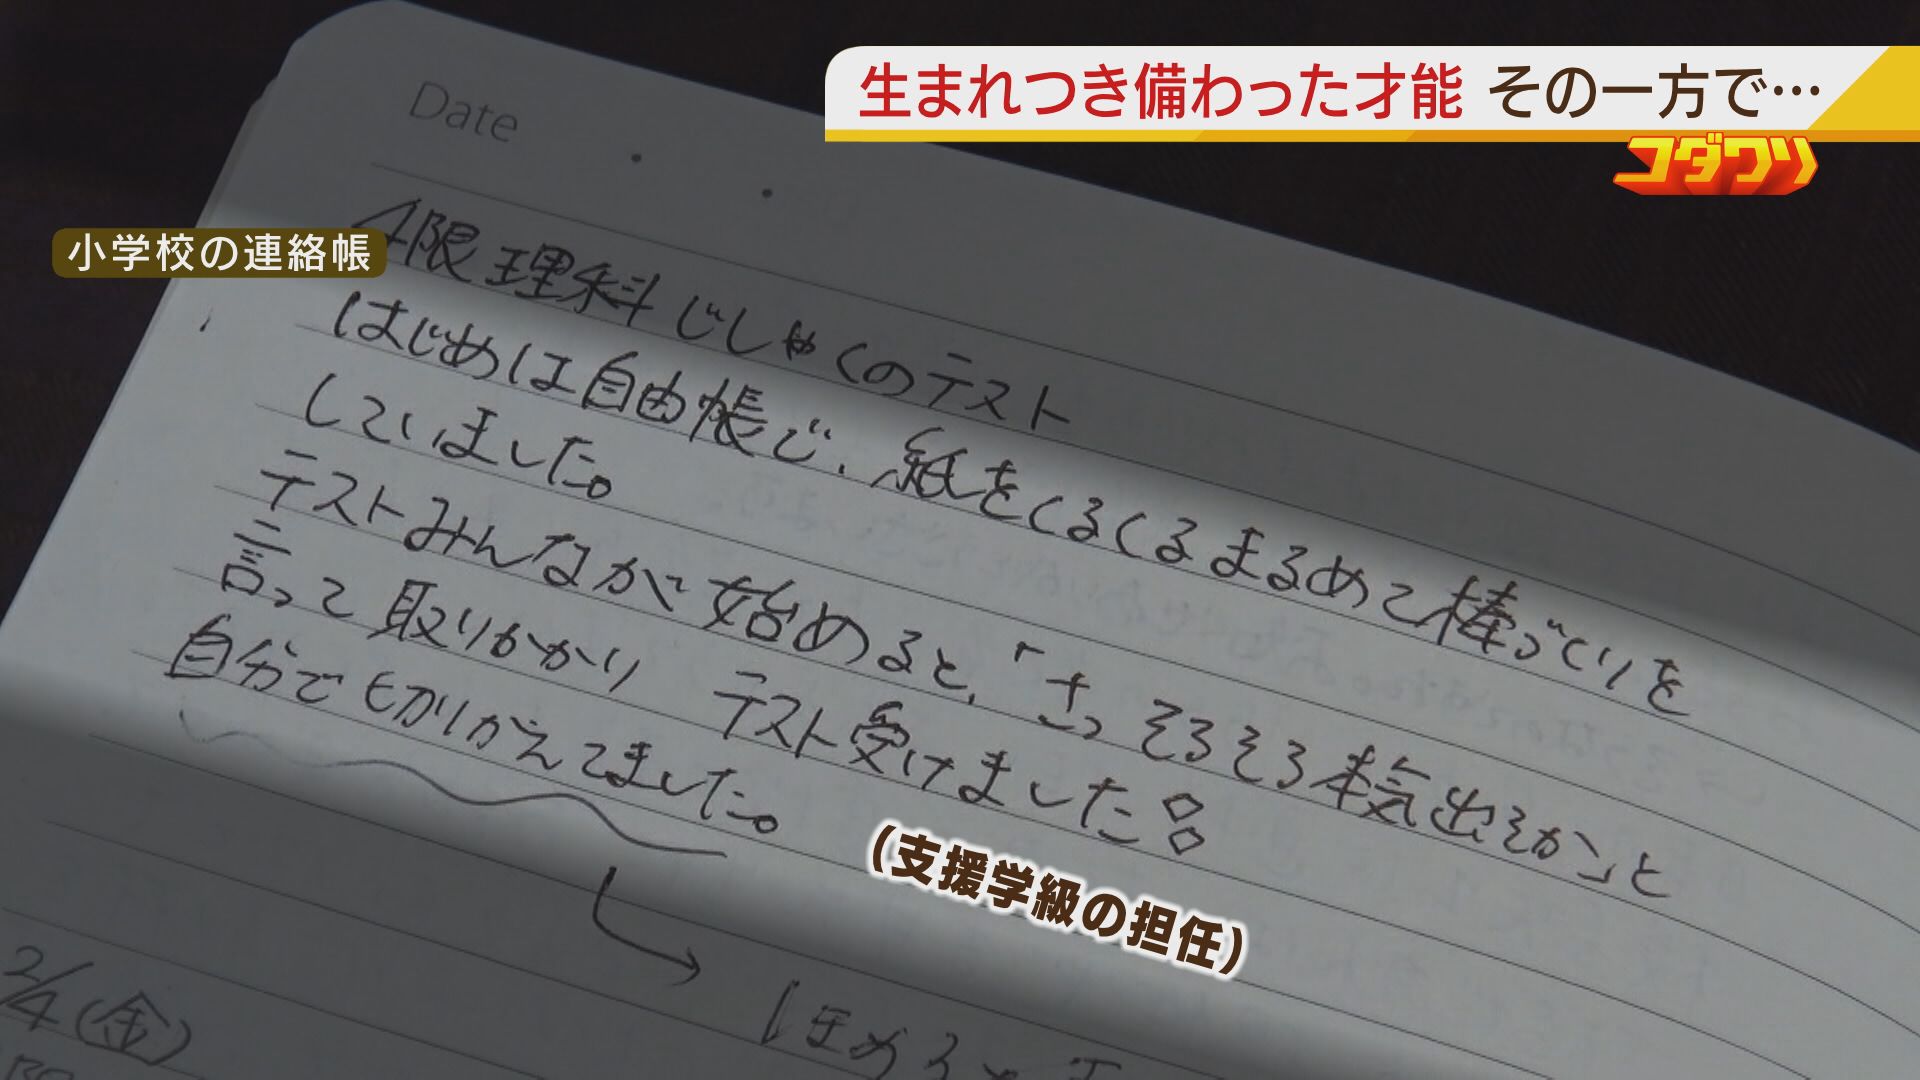 生まれつき備わった才能 その一方で…
コダワリ
小学校の連絡帳
Date
4限 理科 じしゃくのテスト
はじめは自由帳で、紙をくるくるまるめて棒づくりを
していました。
テストみんなが始めると、「さっそろそろ本気出そか」と
言って取りかかり テスト受けました
自分で切りかえてました。
(支援学級の担任)
2/4(金)
ほめると